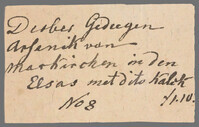 Derbes Gedeegen
Arsenik van
Markirchen in den
Elsas met dito Kalck
No 8 :/1.10.